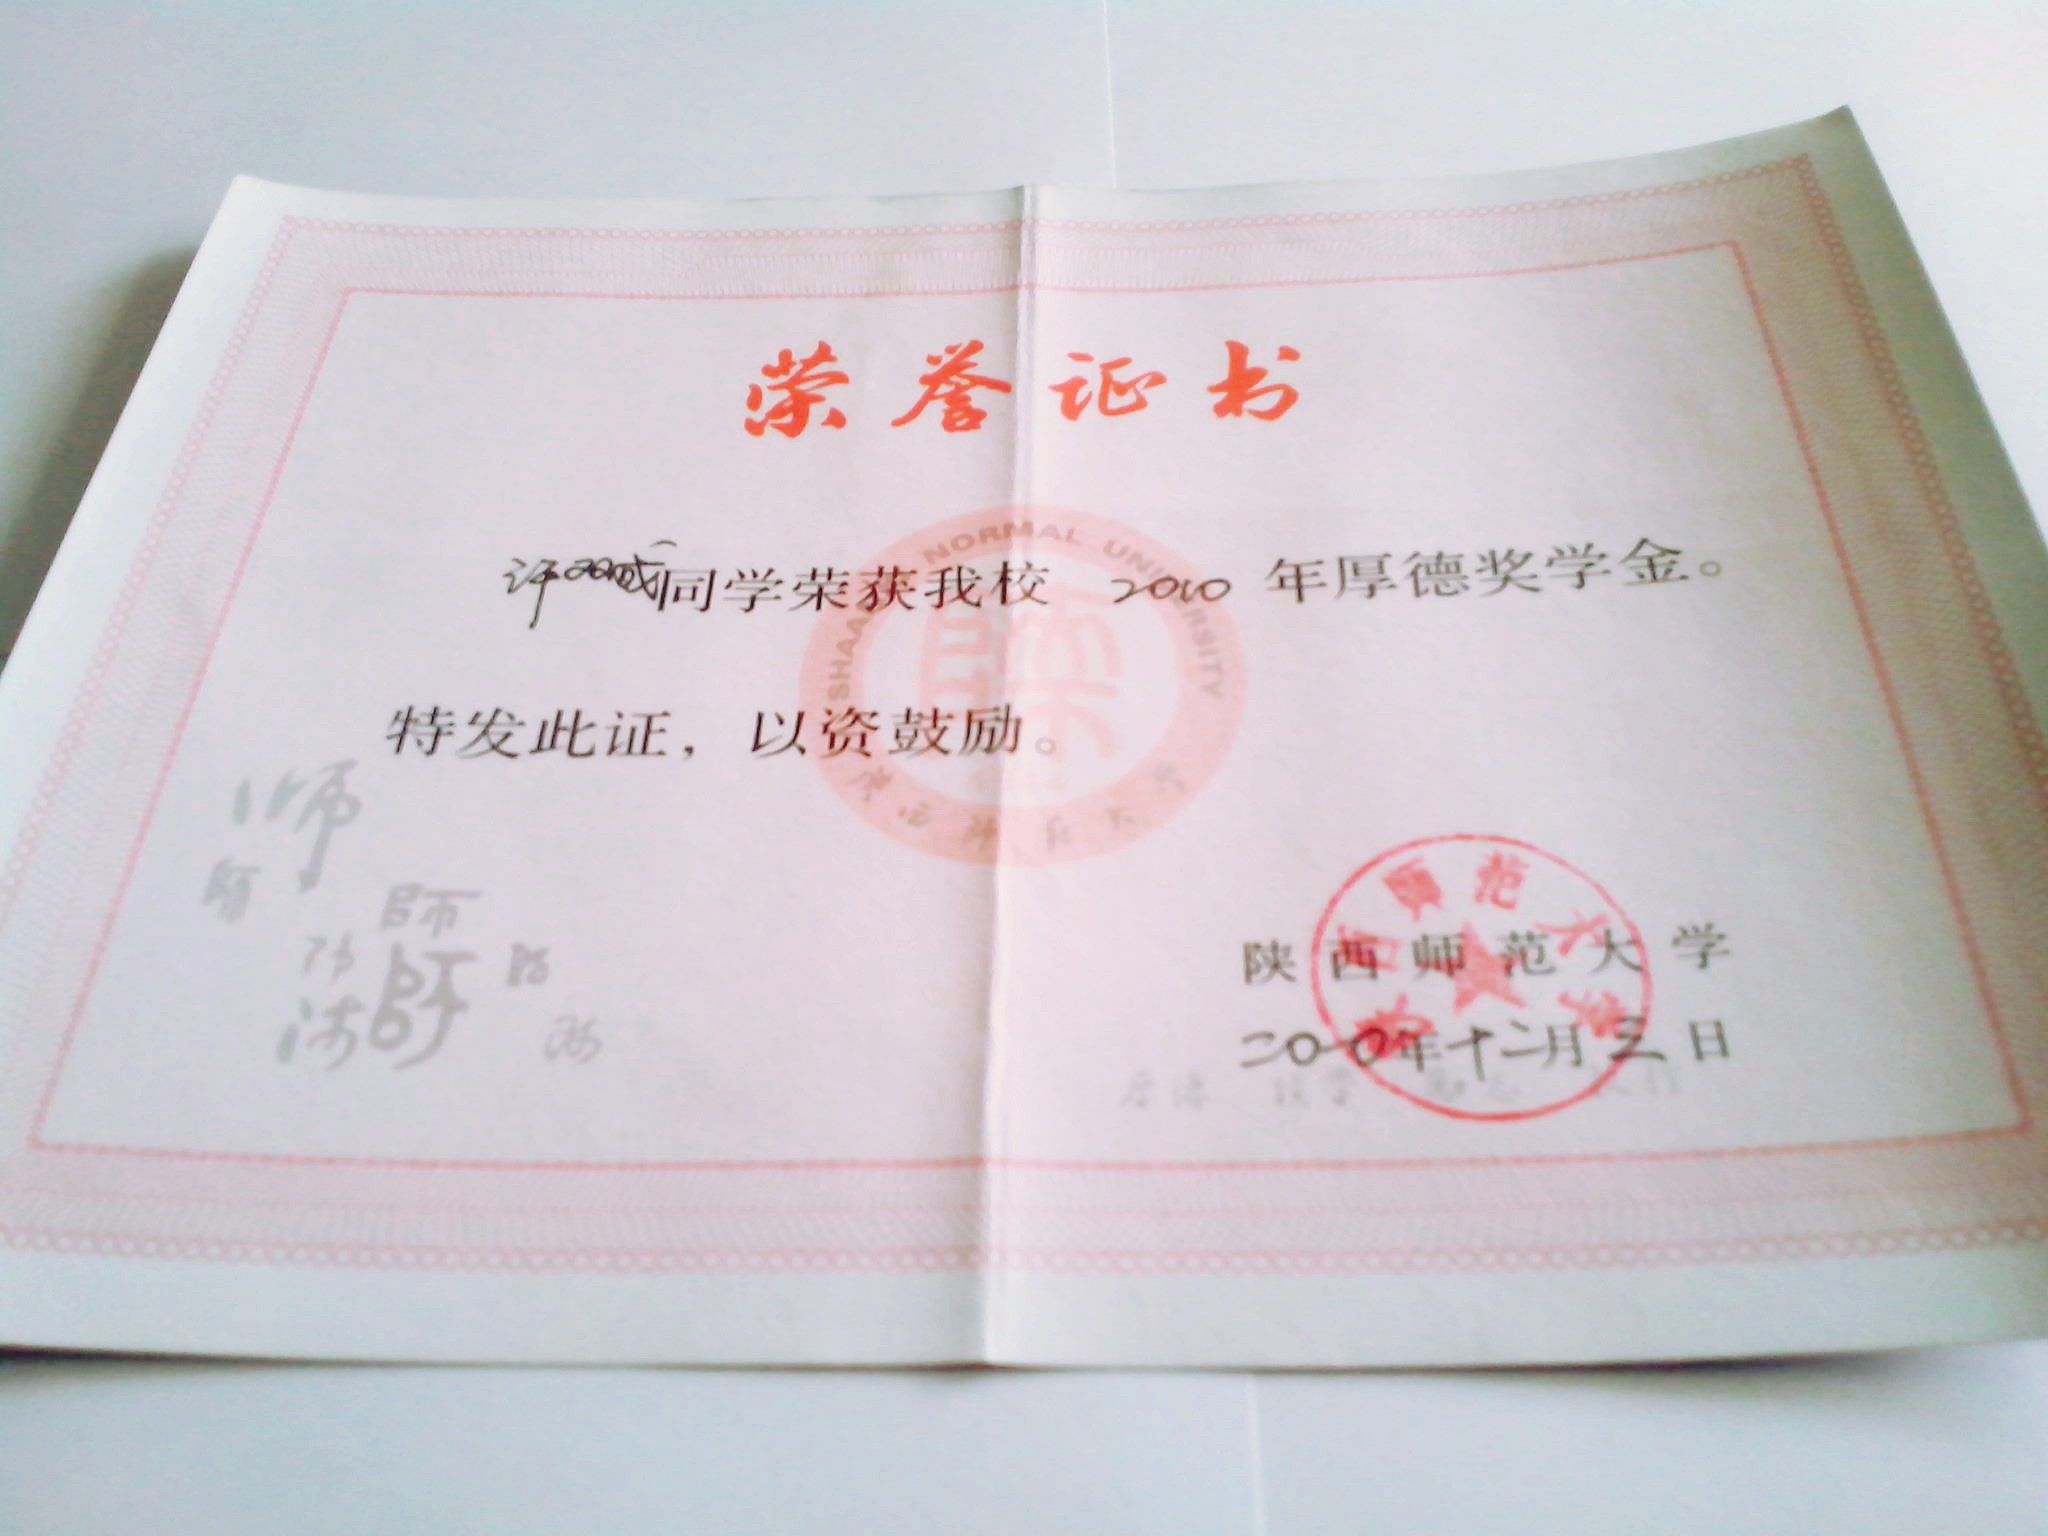 荣誉证书
许 同学荣获我校 2010 年厚德奖学金。
特发此证，以资鼓励。
SHAANXI NORMAL UNIVERSITY
陕西师范大学
师
師
陕西师范大学
陕西师范大学
二〇一〇年十二月三日
厚德 积学 励志 敦行